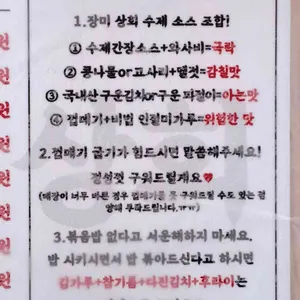 1.장미 상회 수제 소스 조합!
① 수제간장소스+와사비=극락
② 콩나물or고사리+멜젓=감칠맛
③ 국내산구운김치or구운 파절이=아는맛
④ 껍데기+비법 인절미가루=위험한 맛
2.껍데기 굽기가 힘드시면 말씀해주세요!
정성껏 구워드릴게요♡
(매장이 너무 바쁜 경우 껍데기를 못 구워드릴 수도 있는 점
양해 부탁드립니다.ㅠㅠ)
3.볶음밥 없다고 서운해하지 마세요.
밥 시키시면서 밥 볶아드신다고 하시면
김가루+참기름+다진김치+후라이는
원
원
원
원
원